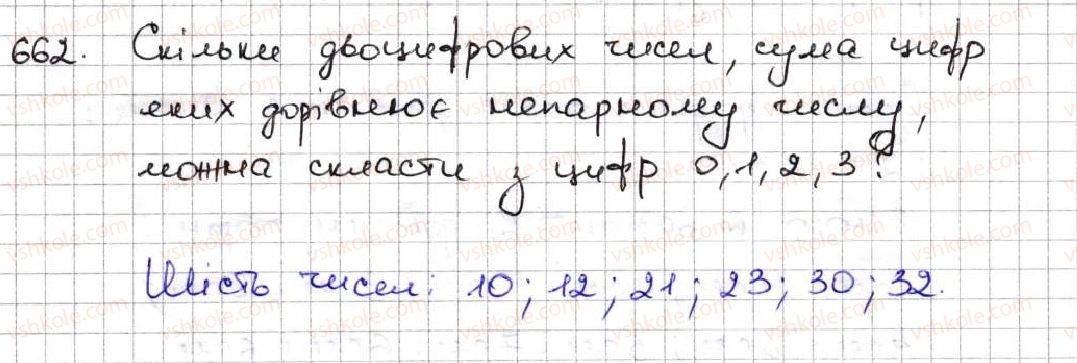 662. Скільки двоцифрових чисел, сума цифр
яких дорівнює непарному числу,
можна скласти з цифр 0, 1, 2, 3?
Шість чисел: 10; 12; 21; 23; 30; 32.